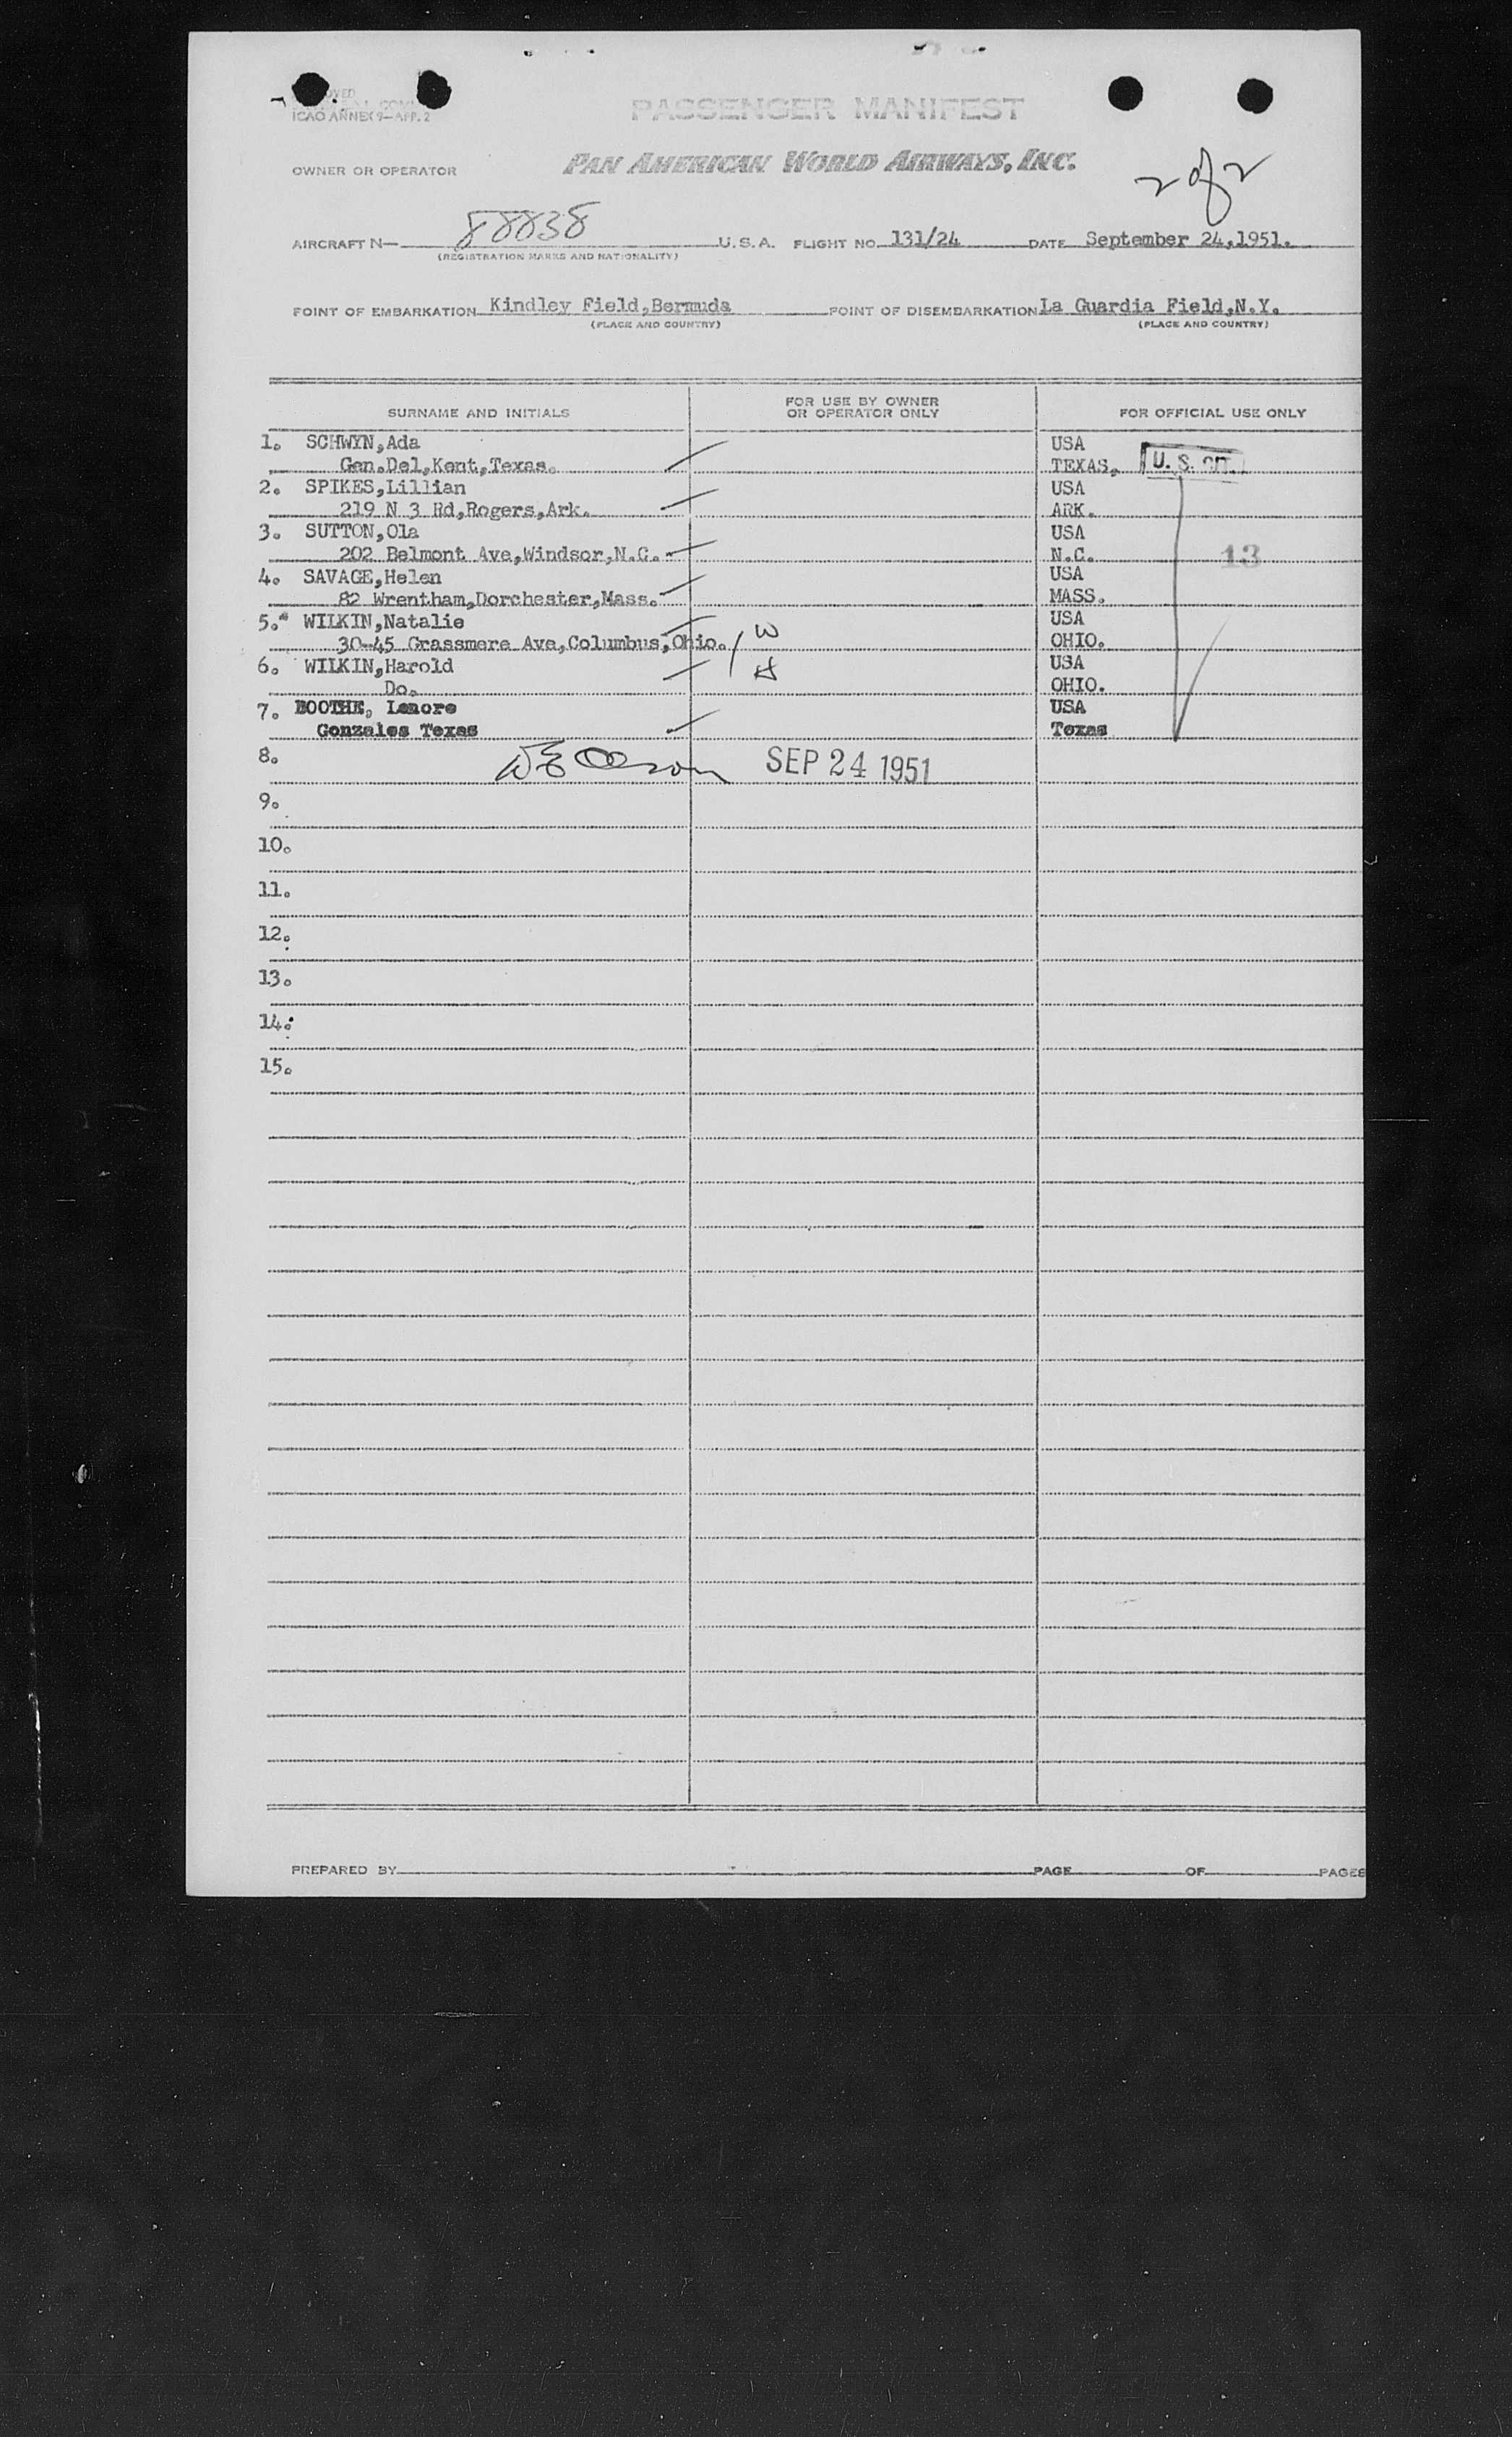 ICAO ANNEX 9—APP. 2
PASSENGER MANIFEST
OWNER OR OPERATOR PAN AMERICAN WORLD AIRWAYS, INC.
2 of 2
AIRCRAFT N— 88838 U.S.A. FLIGHT NO. 131/24 DATE September 24,1951.
(REGISTRATION MARKS AND NATIONALITY)
POINT OF EMBARKATION Kindley Field,Bermuda POINT OF DISEMBARKATION La Guardia Field,N.Y.
(PLACE AND COUNTRY) (PLACE AND COUNTRY)
SURNAME AND INITIALS FOR USE BY OWNER OR OPERATOR ONLY FOR OFFICIAL USE ONLY
1. SCHWYN,Ada USA
Gen.Del,Kent,Texas. TEXAS. U. S. CIT.
2. SPIKES,Lillian USA
219 N 3 Rd,Rogers,Ark. ARK.
3. SUTTON,Ola USA
202 Belmont Ave,Windsor,N.C. N.C. 13
4. SAVAGE,Helen USA
82 Wrentham,Dorchester,Mass. MASS.
5. WILKIN,Natalie W USA
30-45 Grassmere Ave,Columbus,Ohio. OHIO.
6. WILKIN,Harold H USA
Do. OHIO.
7. BOOTHE, Lenore USA
Gonzales Texas Texas
8. SEP 24 1951
9.
10.
11.
12.
13.
14.
15.
PREPARED BY PAGE OF PAGES